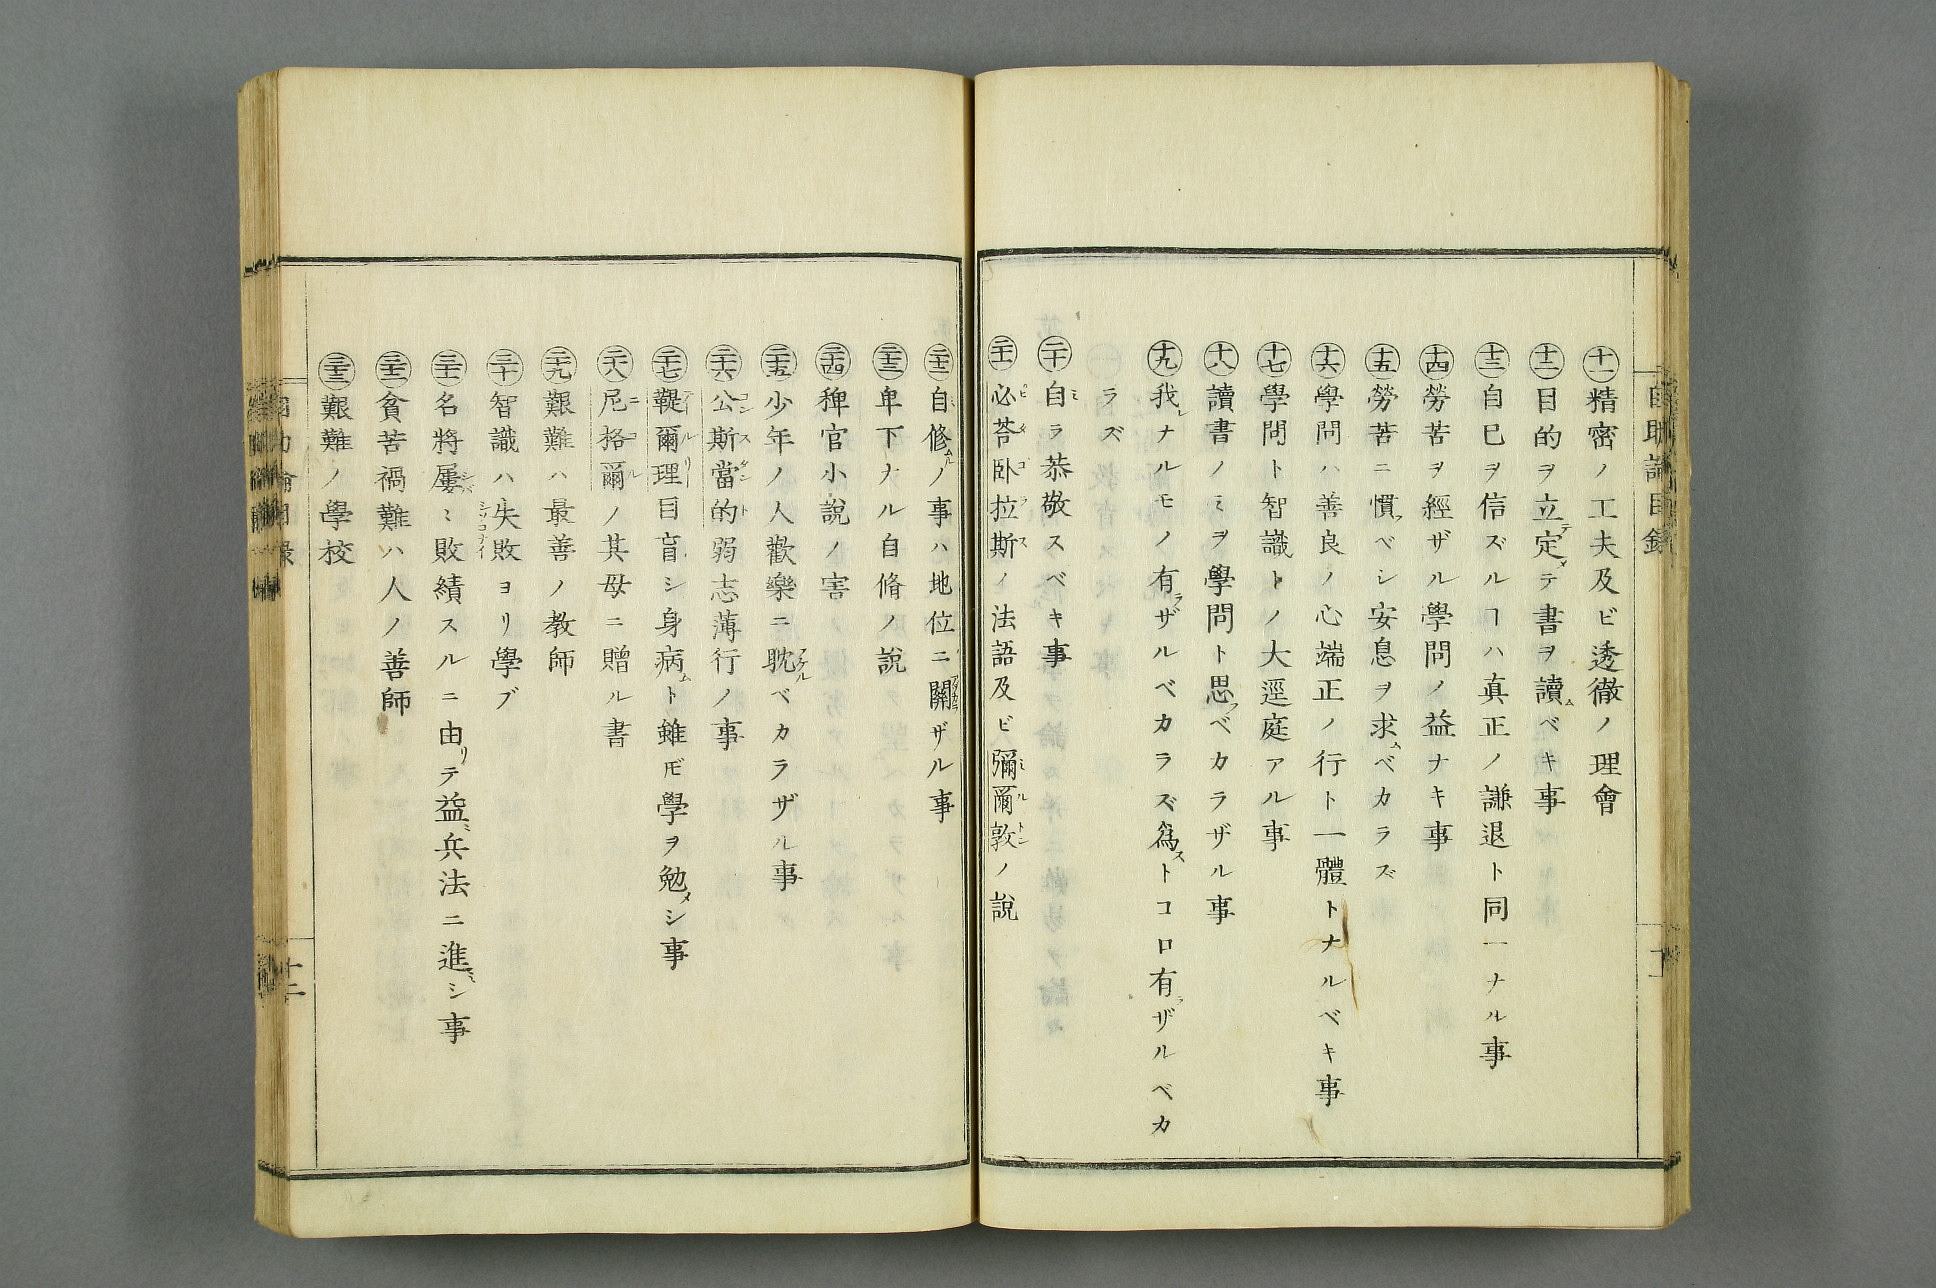 自助論目錄
㊉一精密ノ工夫及ビ透徹ノ理會
十二目的ヲ立テ定メテ書ヲ讀ムベキ事
十三自己ヲ信ズルヿハ真正ノ謙退ト同一ナル事
十四勞苦ヲ經ザル學問ノ益ナキ事
十五勞苦ニ慣フベシ安息ヲ求ムベカラズ
十六學問ハ善良ノ心端正ノ行ト一體トナルベキ事
十七學問ト智識トノ大逕庭アル事
十八讀書ノミヲ學問ト思フベカラザル事
十九我レナルモノ有ラザルベカラズ爲ストコロ有ラザルベカ
ラズ
二十自ミラ恭敬スベキ事
二十一必荅臥拉斯ピタゴラスノ法語及ビ彌爾敦ミルトンノ說
二十二自ミ修ムルノ事ハ地位ニ關アヅカラザル事
二十三卑下ナル自脩ノ說
二十四稗官小說ノ害
二十五少年ノ人歡樂ニ耽フケルベカラザル事
二十六公斯當的コンスタントノ弱志薄行ノ事
二十七鞮爾理テルリ目盲シ身病ムト雖𪜈學ヲ勉メシ事
二十八尼格爾ニコルノ其母ニ贈ル書
二十九艱難ハ最善ノ教師
三十智識ハ失敗シソコナイヨリ學ブ
三十一名將屢シバミ敗績スルニ由リテ益ミ兵法ニ進ミシ事
三十二貧苦禍難ハ人ノ善師
三十三艱難ノ學校
十二